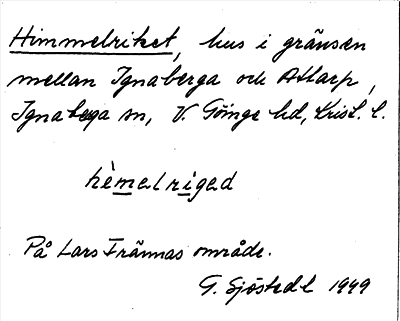 Himmelriket, hus i gränsen
mellan Ignaberga och Attarp,
Ignaberga sn, V. Göinge hd, Krist. l.
hèmelriged
På Lars Frännas område.
G. Sjöstedt 1949